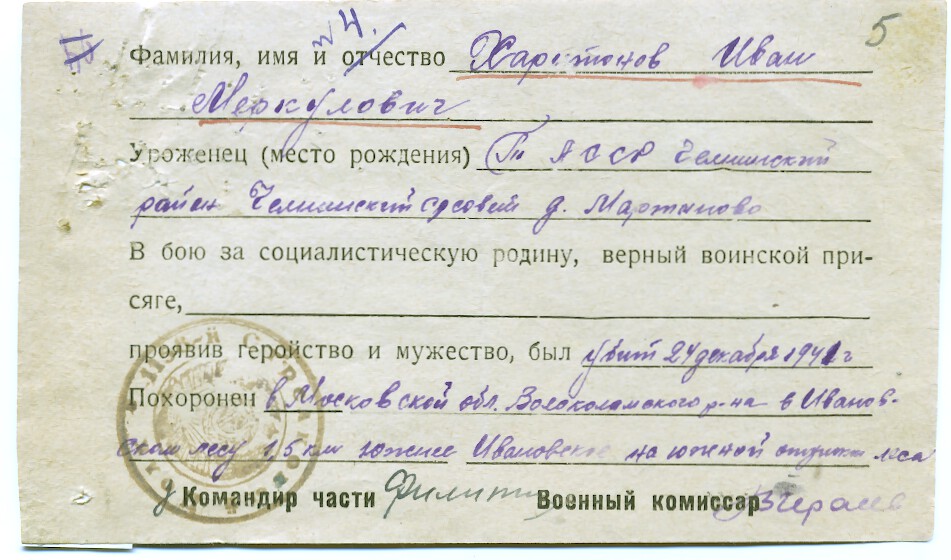 № 4.
5
Фамилия, имя и отчество Харитонов Иван
Меркулович
Уроженец (место рождения) ТАССР Челнинский
район Челнинский с/совет д. Мартаново
В бою за социалистическую родину, верный воинской при-
сяге,
проявив геройство и мужество, был убит 24 декабря 1941 г
Похоронен в Московской обл. Волоколамского р-на в Иванов-
ском лесу 1,5 км южнее Ивановское на южной опушке леса
Командир части Военный комиссар